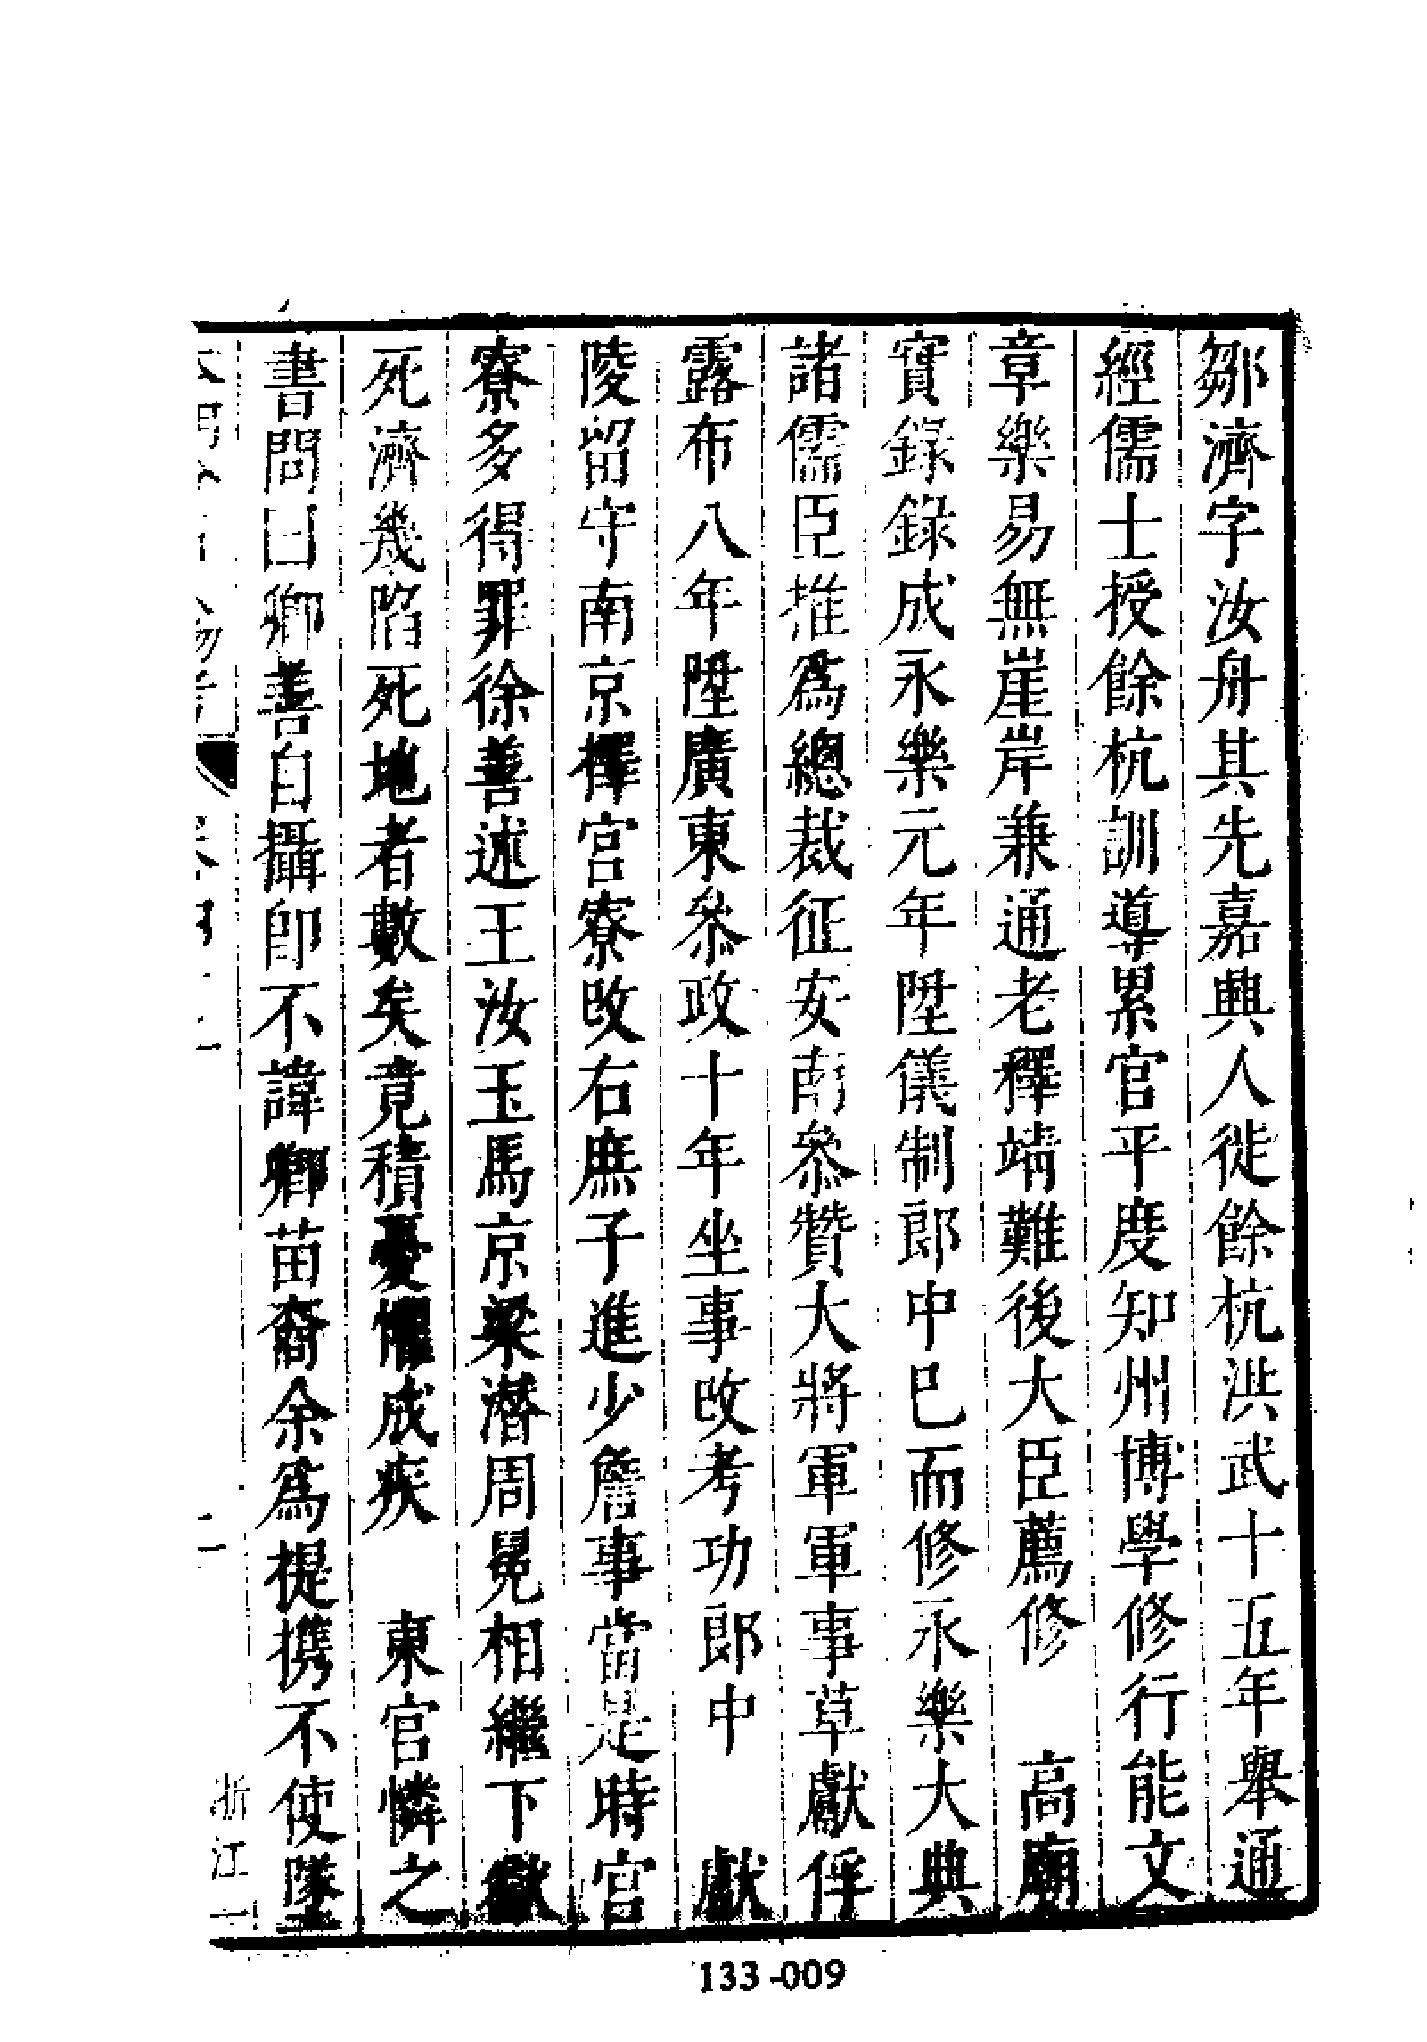 鄒濟字汝舟其先嘉興人徙餘杭洪武十五年舉通
經儒士授餘杭訓導累官平度知州博學修行能文
章樂易無崖岸兼通老釋靖難後大臣薦修　高廟
實錄錄成永樂元年陞儀制郎中已而修永樂大典
諸儒臣推爲總裁征安南參贊大將軍軍事草獻俘
露布八年陞廣東參政十年坐事改考功郎中　獻
陵留守南京擇宮寮改右庶子進少詹事當是時宮
寮多得罪徐善述王汝玉馬京梁潛周冕相繼下獄
死濟幾陷死地者數矣竟積憂懼成疾　東宮憐之
書問曰卿善自攝卽不諱卿苗裔余爲提携不使墜
浙江一
133-009